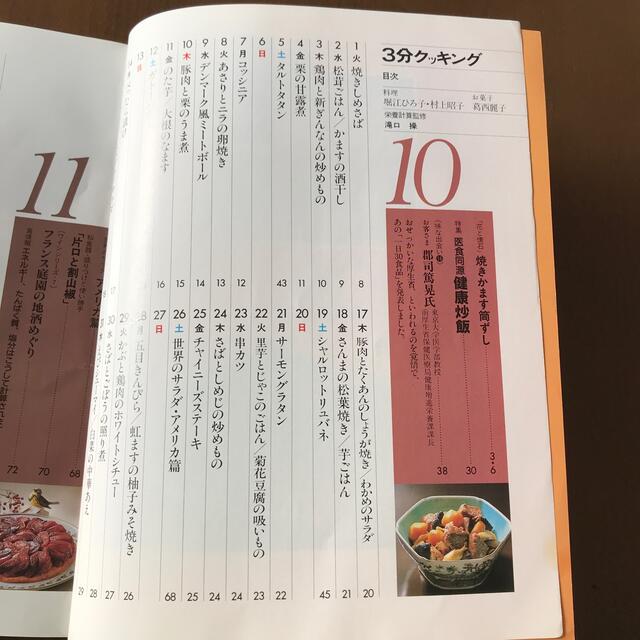 3分クッキング
目次
料理
堀江ひろ子・村上昭子
お菓子
葛西麗子
栄養計算監修
滝口 操
10
「花と懐石」焼きかます筒ずし 3・6
特集 医食同源 健康炒飯 30
お客さま 郡司篤晃氏 38
東京大学医学部教授
前厚生省保健医療局健康増進栄養課課長
おせっかいな厚生省、といわれるのを覚悟で、
あの「一日30食品」を発表しました。
1 火 焼きしめさば 8
2 水 松茸ごはん/かますの酒干し 9
3 木 鶏肉と新ぎんなんの炒めもの 10
4 金 栗の甘露煮 11
5 土 タルトタタン 43
6 日
7 月 コッシニア 12
8 火 あさりとニラの卵焼き 13
9 水 デンマーク風ミートボール 14
10 木 豚肉と栗のうま煮 15
11 金 のた芋/大根のなます 16
12 土
13 日
17 木 豚肉とたくあんのしょうが焼き/わかめのサラダ 20
18 金 さんまの松葉焼き/芋ごはん 21
19 土 シャルロットリュバネ 45
20 日
21 月 サーモングラタン 22
22 火 里芋とじゃこのごはん/菊花豆腐の吸いもの 23
23 水 串カツ 24
24 木 さばとしめじの炒めもの 24
25 金 チャイニーズステーキ 25
26 土 世界のサラダ・アメリカ篇 68
27 日
28 月 五目きんぴら/虹ますの柚子みそ焼き 26
29 火 かぶと鶏肉のホワイトシチュー 27
30 水 さばとごぼうの照り煮 28
29
11
「片口と割山椒」 68
フランス庭園の地酒めぐり 70
エネルギー、たんぱく質、塩分はこうして計算された 72